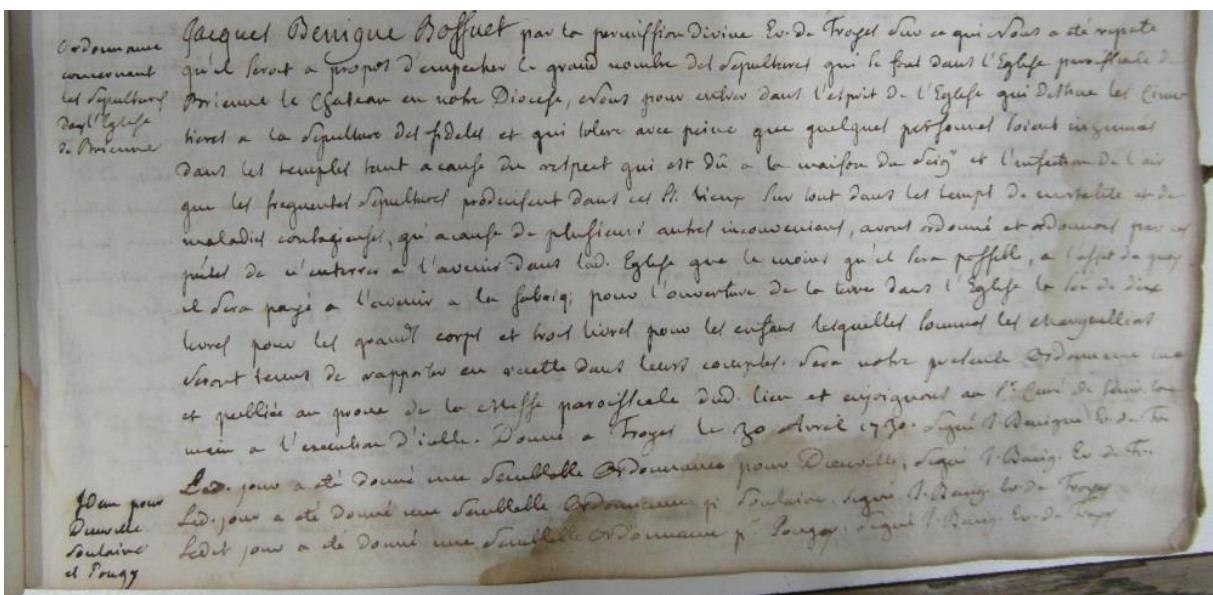 Ordonnance
concernant
les sepultures
dans l'Eglise
de Brienne
Jacques Benigne Bossuet par la permission divine Ev. de Troyes sur ce qui nous a été represté
qu'il seroit a propos d'empecher le grand nombre des sepultures qui se font dans l'Eglise paroissiale de
Brienne le Chateau en notre Diocese, nous pour entrer dans l'esprit de l'Eglise qui destine les Cime
tieres a la sepulture des fideles et qui tolere avec peine que quelques personnes soient inhumés
dans les temples tant a cause du respect qui est dû a la maison du Seigr et l'infection de l'air
que les frequentes sepultures produisent dans ces Sts. lieux sur tout dans les temps de mortalité et de
maladies contagieuses, qu'a cause de plusieurs autres inconveniens, avons ordonné et ordonnons par ces
pntes de n'enterrer a l'avenir dans lad. Eglise que le moins qu'il sera possible, a l'effet de quoy
il sera payé a l'avenir a la fabriq; pour l'ouverture de la terre dans l'Eglise la so͞e de dix
livres pour les grands corps et trois livres pour les enfans lesquelles sommes les marguelliers
seront tenus de rapporter en recette dans leurs comptes. sera notre presente Ordonnance lue
et publiée au prone de la Messe paroissiale dud. lieu et enjoignons au Sr. Curé de tenir la
main a l'execution d'icelle. Donné a Troyes le 30 Avril 1730. signé J. Benigne Ev. de Tr
Led. jour a été donné une semblable Ordonnance pour Dienville, signé J. Benig. Ev. de Tr.
Led. jour a été donné une semblable Ordonnance pr Soulaine. signé J. Benig. Ev. de Troyes
Ledit jour a été donné une semblable Ordonnance pr. Pougy. signé J. Benig. Ev. de Troyes
Idem pour
Dienville
Soulaine
et Pougy